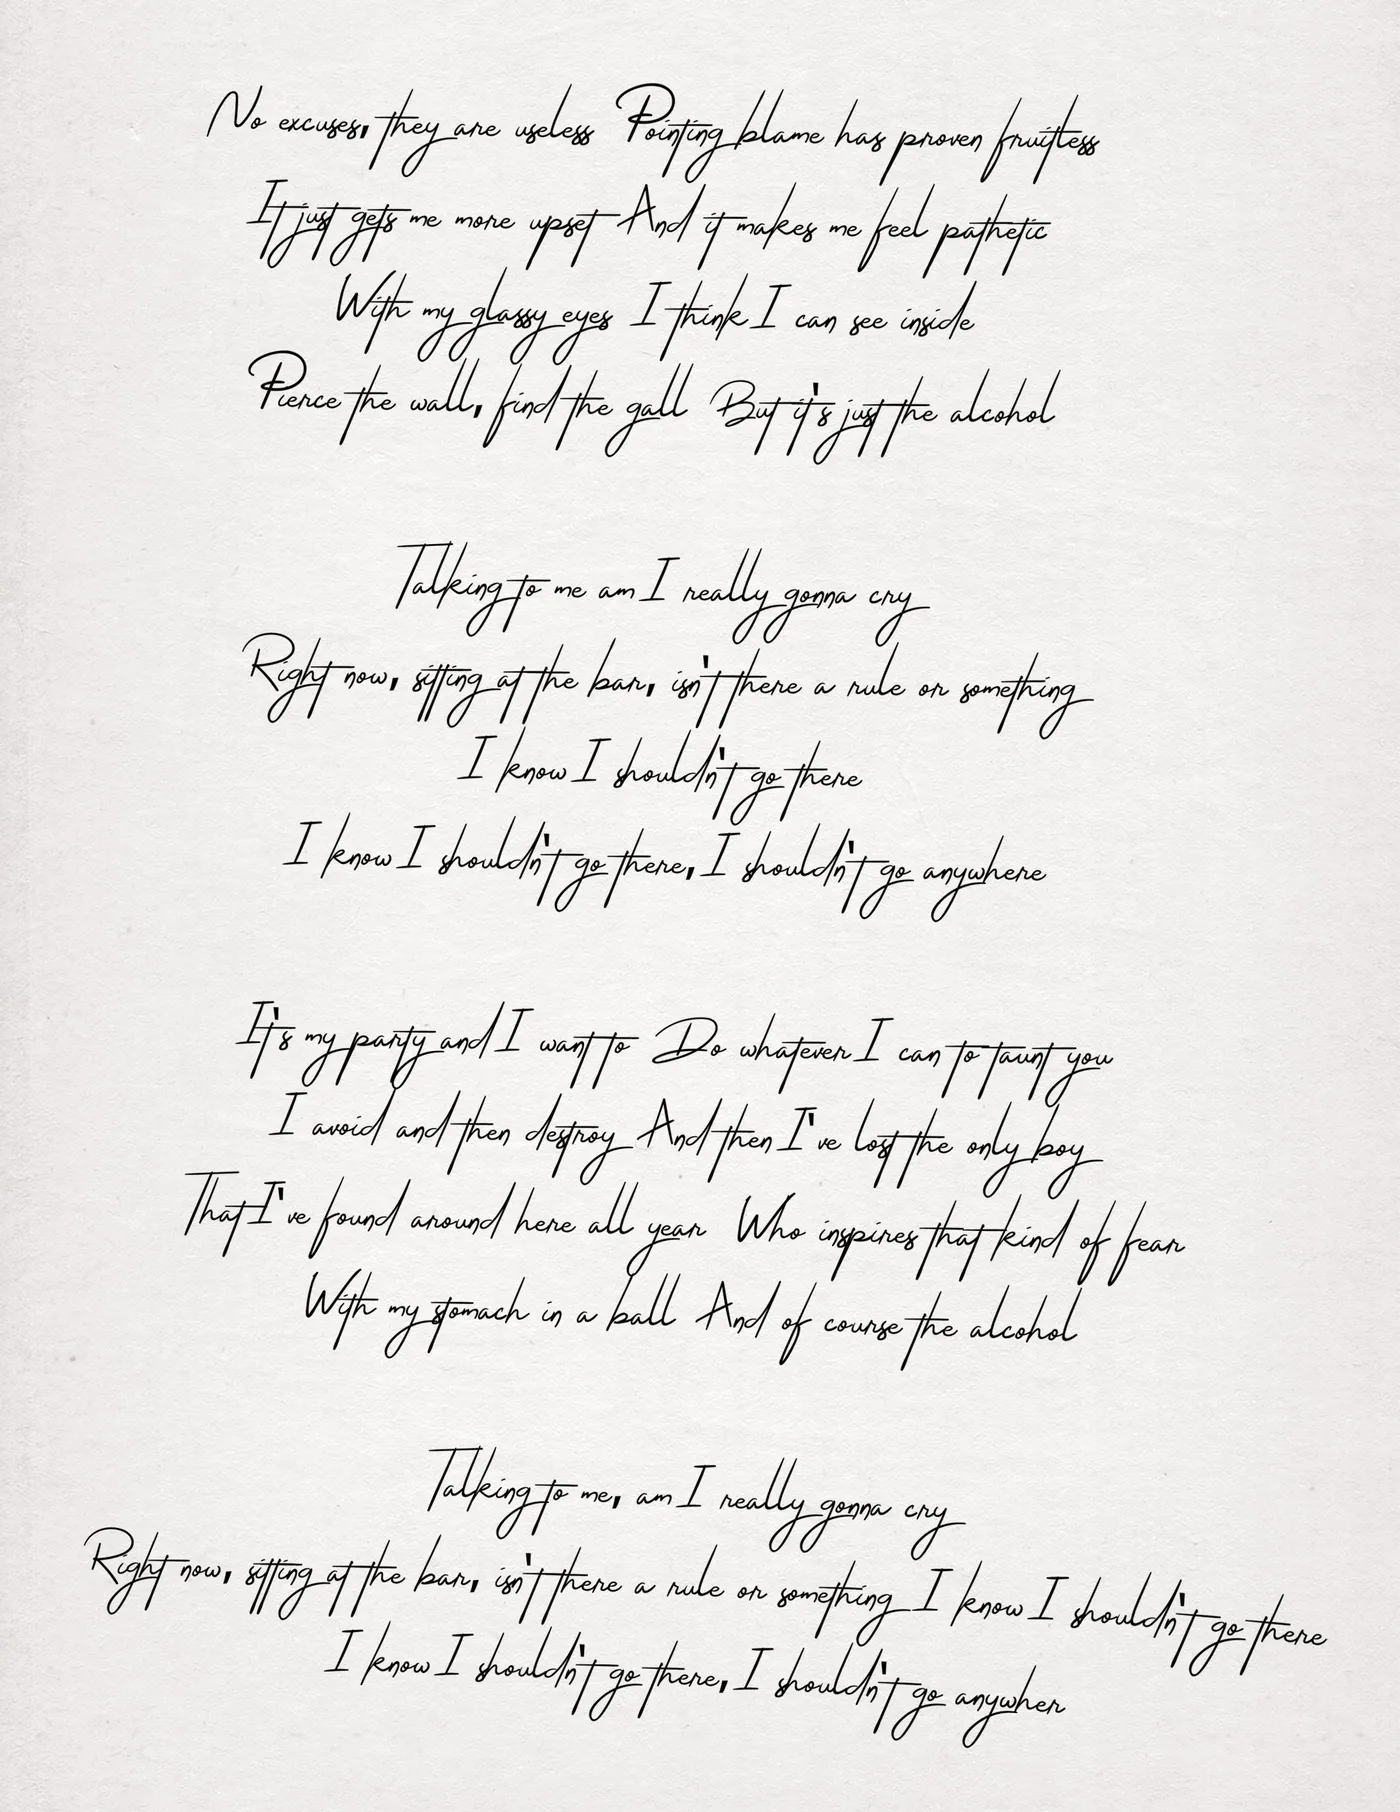 No excuses, they are useless Pointing blame has proven fruitless
It just gets me more upset And it makes me feel pathetic
With my glassy eyes I think I can see inside
Pierce the wall, find the gall But it's just the alcohol
Talking to me am I really gonna cry
Right now, sitting at the bar, isn't there a rule or something
I know I shouldn't go there
I know I shouldn't go there, I shouldn't go anywhere
It's my party and I want to Do whatever I can to taunt you
I avoid and then destroy And then I've lost the only boy
That I've found around here all year Who inspires that kind of fear
With my stomach in a ball And of course the alcohol
Talking to me, am I really gonna cry
Right now, sitting at the bar, isn't there a rule or something I know I shouldn't go there
I know I shouldn't go there, I shouldn't go anywher